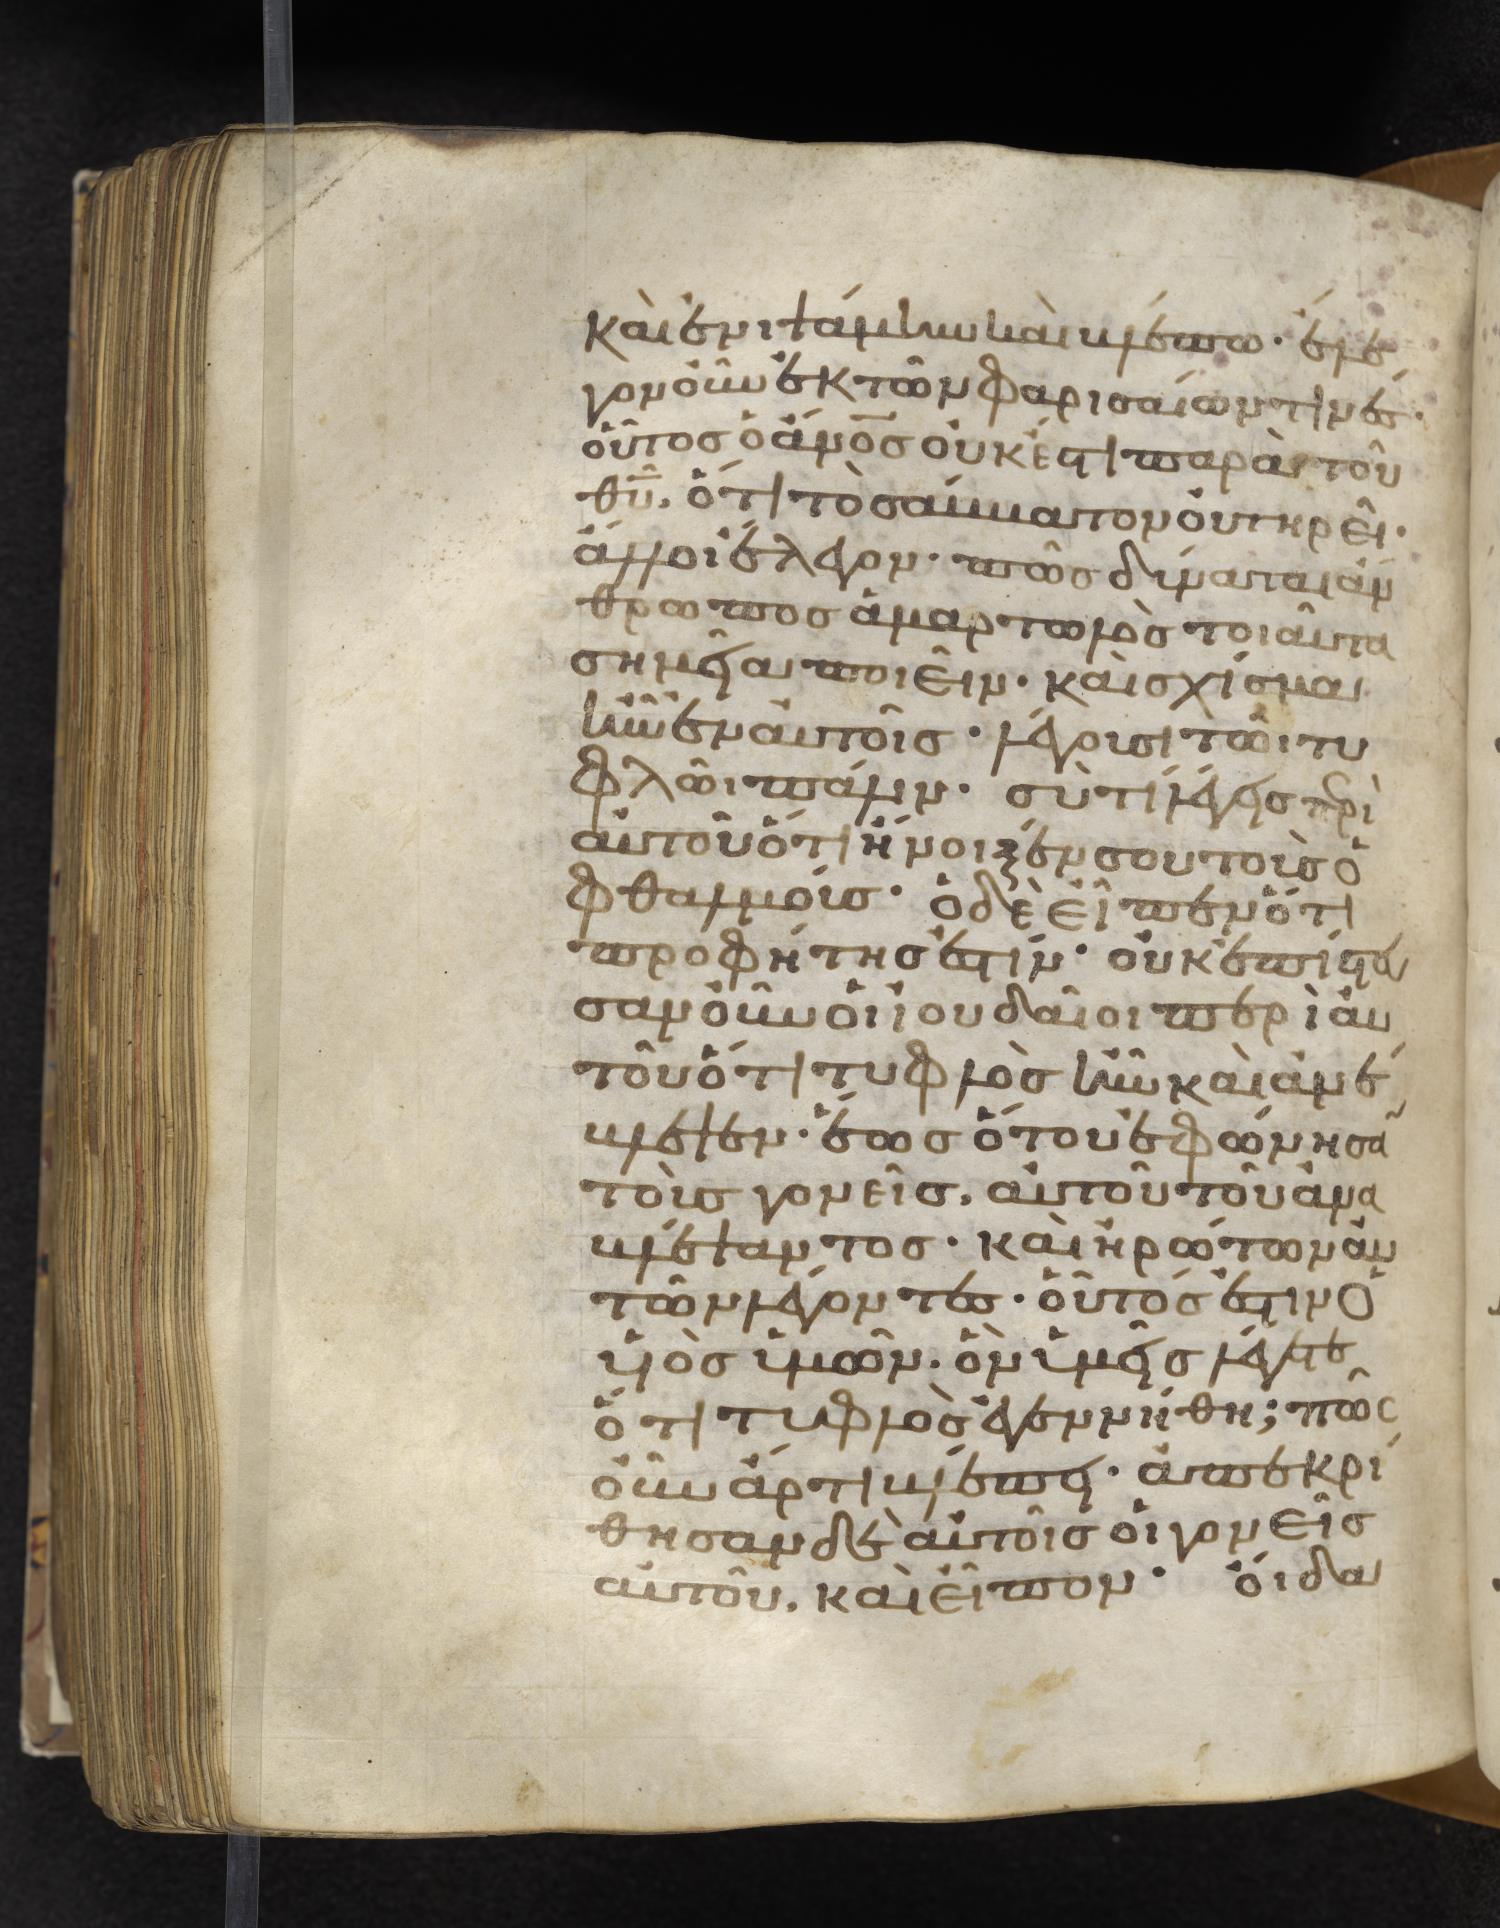 καὶ ἐνιψάμην καὶ βλέπω· ἔλε
γον οὖν ἐκ τῶν φαρισαίων τινές·
οὗτος ὁ ἄν̅ο̅ς οὐκ ἔστι παρὰ τοῦ
θ̅υ̅, ὅτι τὸ σάββατον οὐ τηρεῖ·
ἄλλοι ἔλεγον· πῶς δύναται ἄν
θρωπος ἁμαρτωλὸς τοιαῦτα
σημεῖα ποιεῖν· καὶ σχίσμα
ἦν ἐν αὐτοῖς· λέγουσι τῶι τυ
φλῶι πάλιν· σὺ τί λέγεις περὶ
αὐτοῦ ὅτι ἤνοιξέν σου τοὺς ὀ
φθαλμούς· ὁ δὲ εἶπεν ὅτι
προφήτης ἐστίν· οὐκ ἐπίστευ
σαν οὖν οἱ ἰουδαῖοι περὶ αὐ
τοῦ ὅτι τυφλὸς ἦν καὶ ἀνέ
βλεψεν· ἕως ὅτου ἐφώνησα̅
τοὺς γονεῖς, αὐτοῦ τοῦ ἀνα
βλέψαντος· καὶ ἠρώτων αὐ
τῶν λέγοντες· οὗτός ἐστιν ὁ
υἱὸς ὑμῶν· ὃν ὑμεῖς λέγετε
ὅτι τυφλὸς ἐγεννήθη; πῶς
οὖν ἄρτι βλέπει· ἀπεκρί
θησαν δὲ αὐτοῖς οἱ γονεῖς
αὐτοῦ, καὶ εἶπον· οἴδα